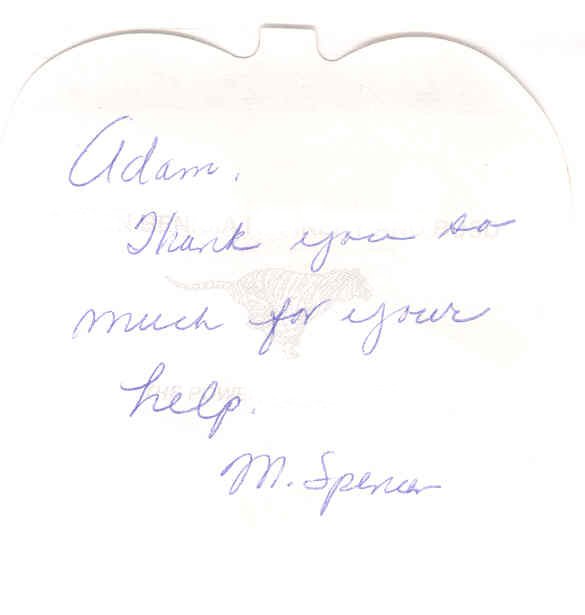 Adam,
Thank you so
much for your
help.
M. Spencer